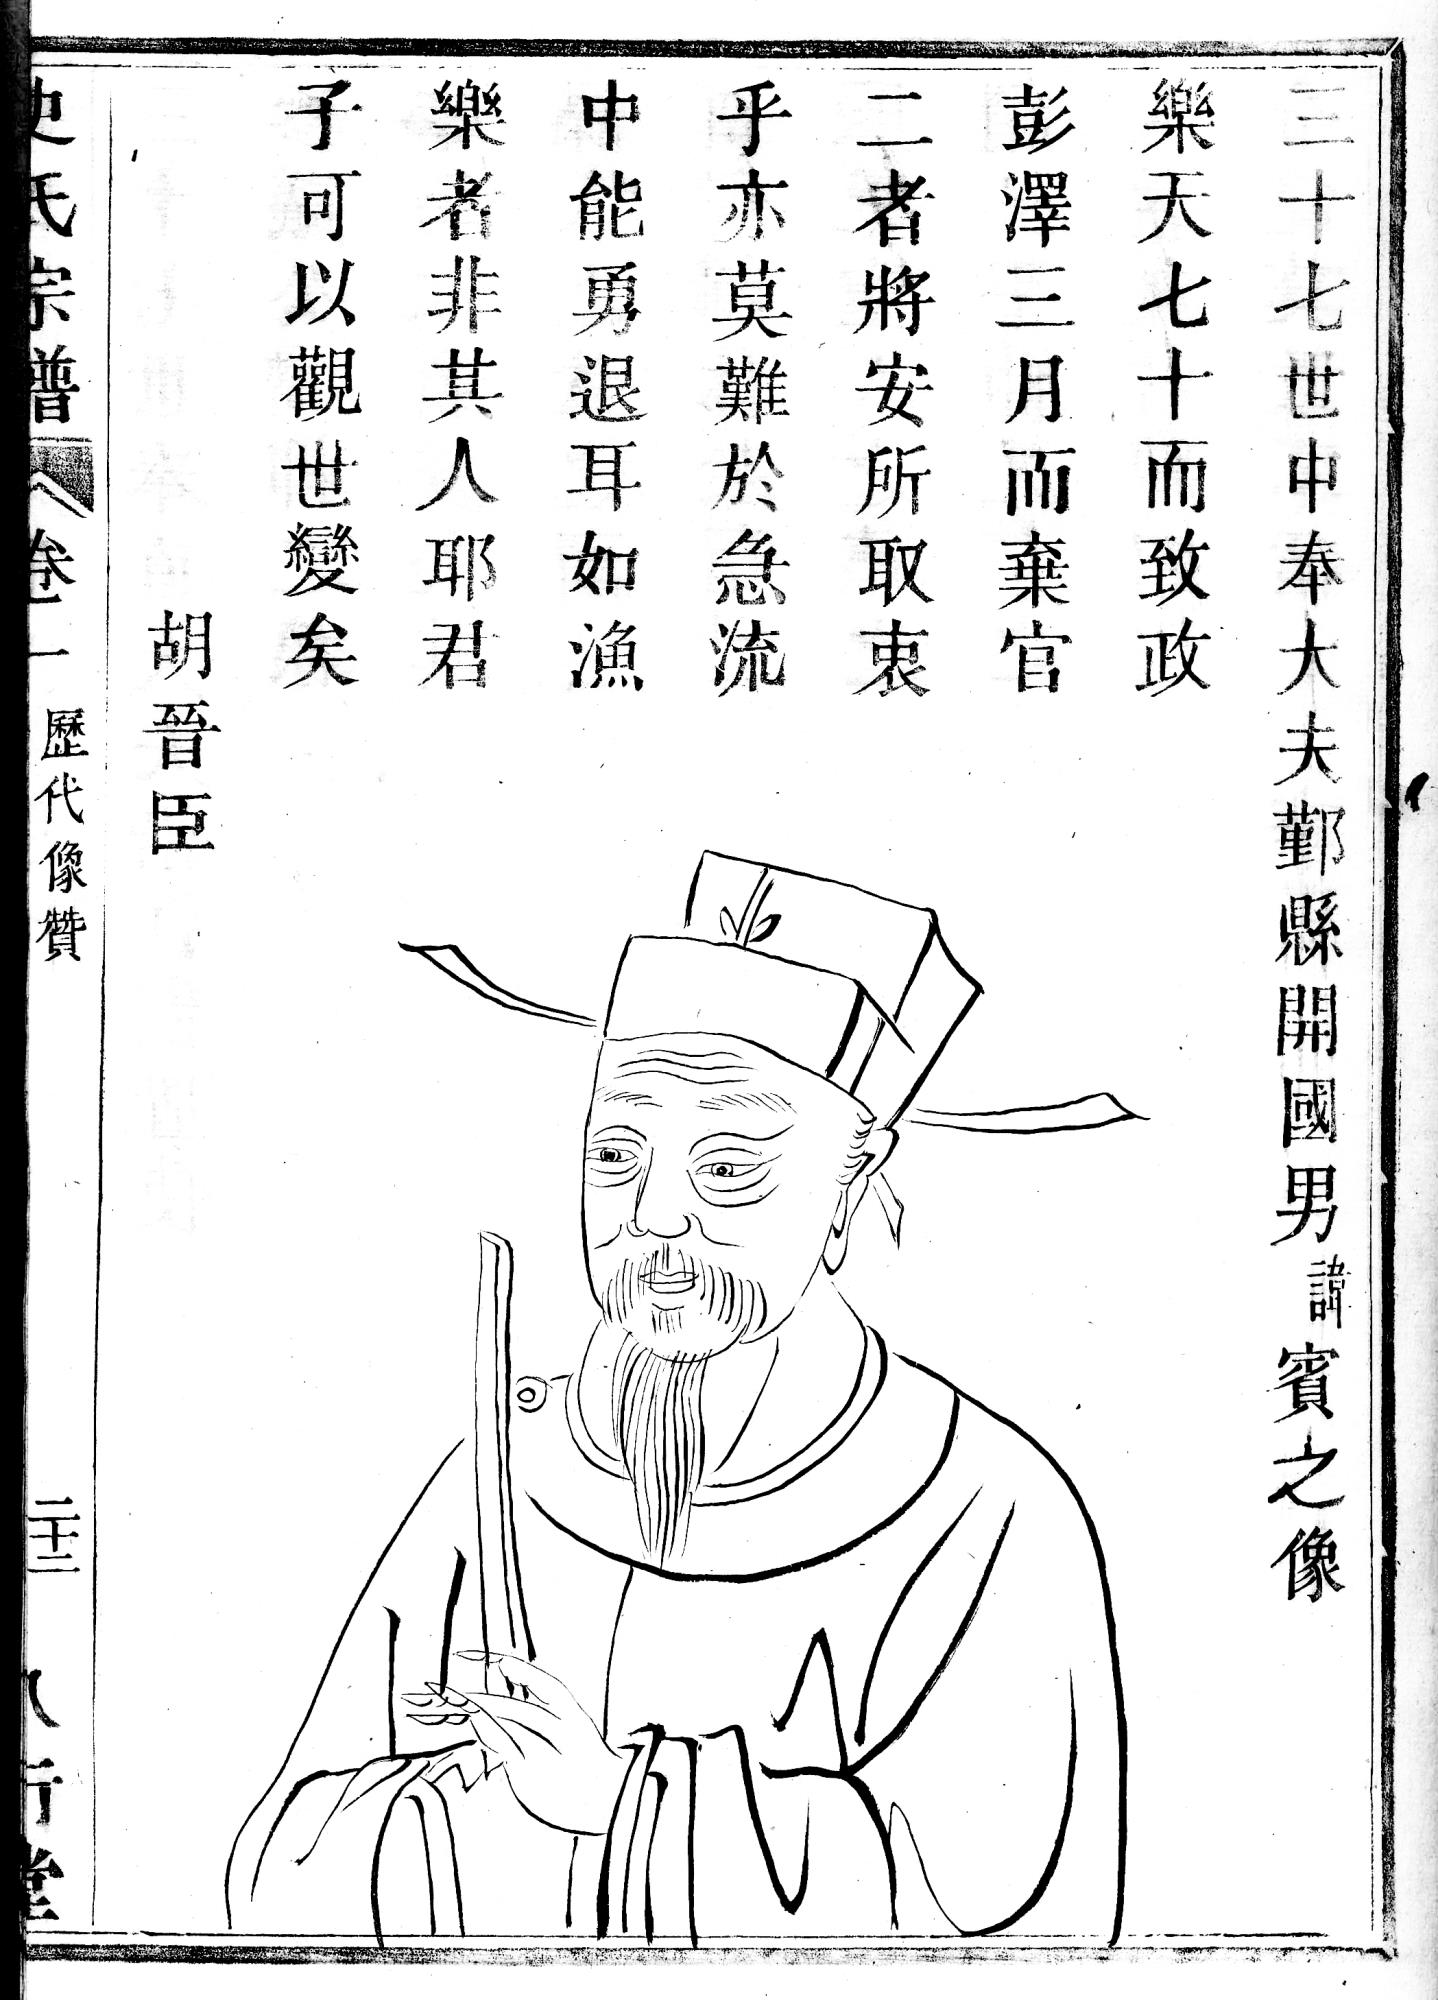 三十七世中奉大夫鄞縣開國男諱賓之像
樂天七十而致政
彭澤三月而棄官
二者將安所取衷
乎亦莫難於急流
中能勇退耳如漁
樂者非其人耶君
子可以觀世變矣
胡晉臣
史氏宗譜
卷一
歷代像贊
二十二
八行堂